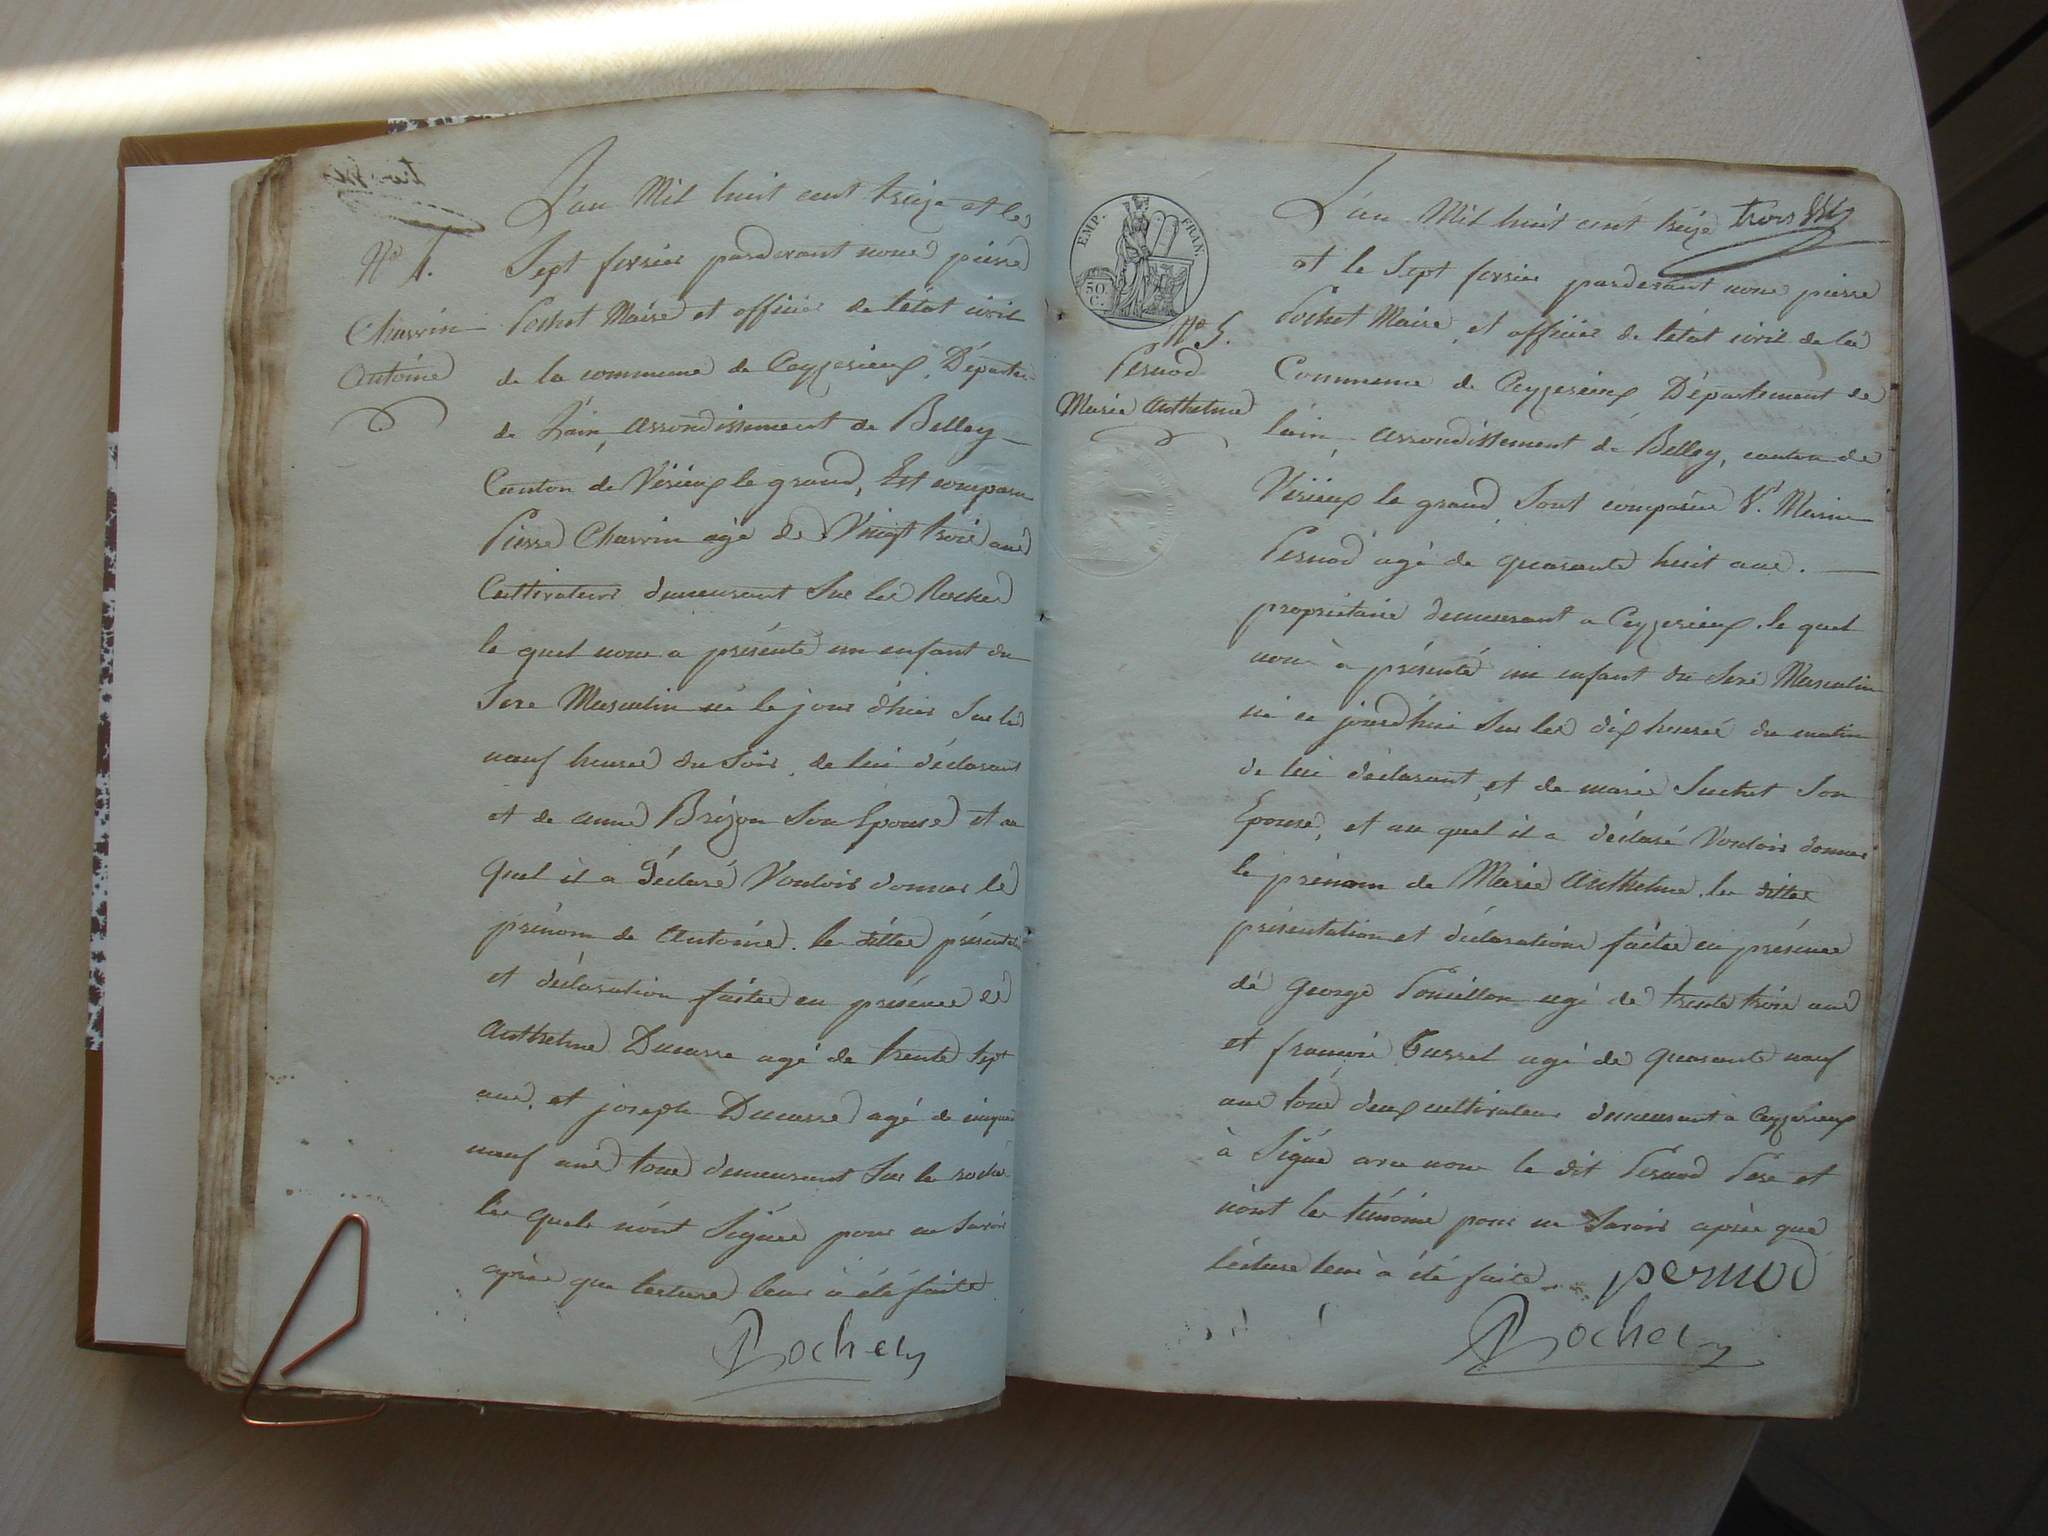 L'an Mil huit cent treize et le
N° 4.
Sept fevrier pardevant nous pierre
Charvin
Antoine
Pochet Maire et officier de l'état civil
de la commune de Ceyzerieux, Départem.
de L'ain, arrondissement de Belley
Canton de Virieux le grand, Est comparu
Pierre Charvin agé de Vingt trois ans
Cultivateur demeurant Sur la Roche
le quel nous a présenté un enfant du
Sexe Masculin né le jour d'hier Sur les
neuf heures du Soir, de lui déclarant
et de anne Brizon Son Epouse et au
quel il a déclaré Vouloir donner le
prénom de Antoine. les dittes présentation
et déclaration faites en présence de
Anthelme Ducarre agé de trente Sept
ans, et joseph Ducarre agé de cinquante
neuf ans tous demeurant Sur la roche
les quels n'ont Signés pour ne Savoir
après que lecture leur à été faite
Pochet
EMP. FRAN.
50 C.
N° 5.
Pernod
Marie Anthelme
L'an Mil huit cent treize trois
et le Sept fevrier pardevant nous pierre
Pochet Maire, et officier de l'état civil de la
Commune de Ceyzerieux Département de
l'ain arrondissement de Belley, canton de
Virieux le grand, Sont comparu Sr. Marin
Pernod agé de quarante huit ans.
propriétaire demeurant a Ceyzerieux. le quel
nous à présenté un enfant du Sexe Masculin
né ce jourd'hui Sur les dix heures du matin
de lui déclarant, et de marie Suchet Son
Epouse, et au quel il a déclaré Vouloir donner
le prénom de Marie Anthelme. les dittes
présentation et déclarations faites en présence
de George Pouillon agé de trente trois ans
et françois Tussel agé de quarante neuf
ans tous deux cultivateurs demeurant à Ceyzerieux
à Signé avec nous le dit Pernod Pere et
n'ont les témoins pour ne Savoir après que
lecture leur à été faite. pernod
Pochet